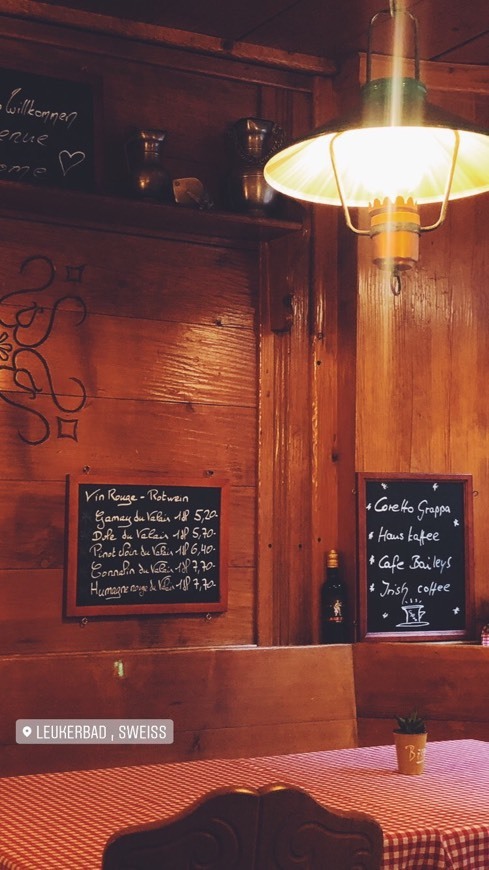 Willkommen
enue
ome
Vin Rouge - Rotwein
Gamay du Valais 1dl 5,20.-
Dole du Valais 1dl 5,70.-
Pinot Noir du Valais 1dl 6,40.-
Cornalin du Valais 1dl 7,70.-
Humagne rouge du Valais 1dl 7,70.-
Coretto Grappa
Hauskaffee
Cafe Baileys
Irish coffee
LEUKERBAD , SWEISS